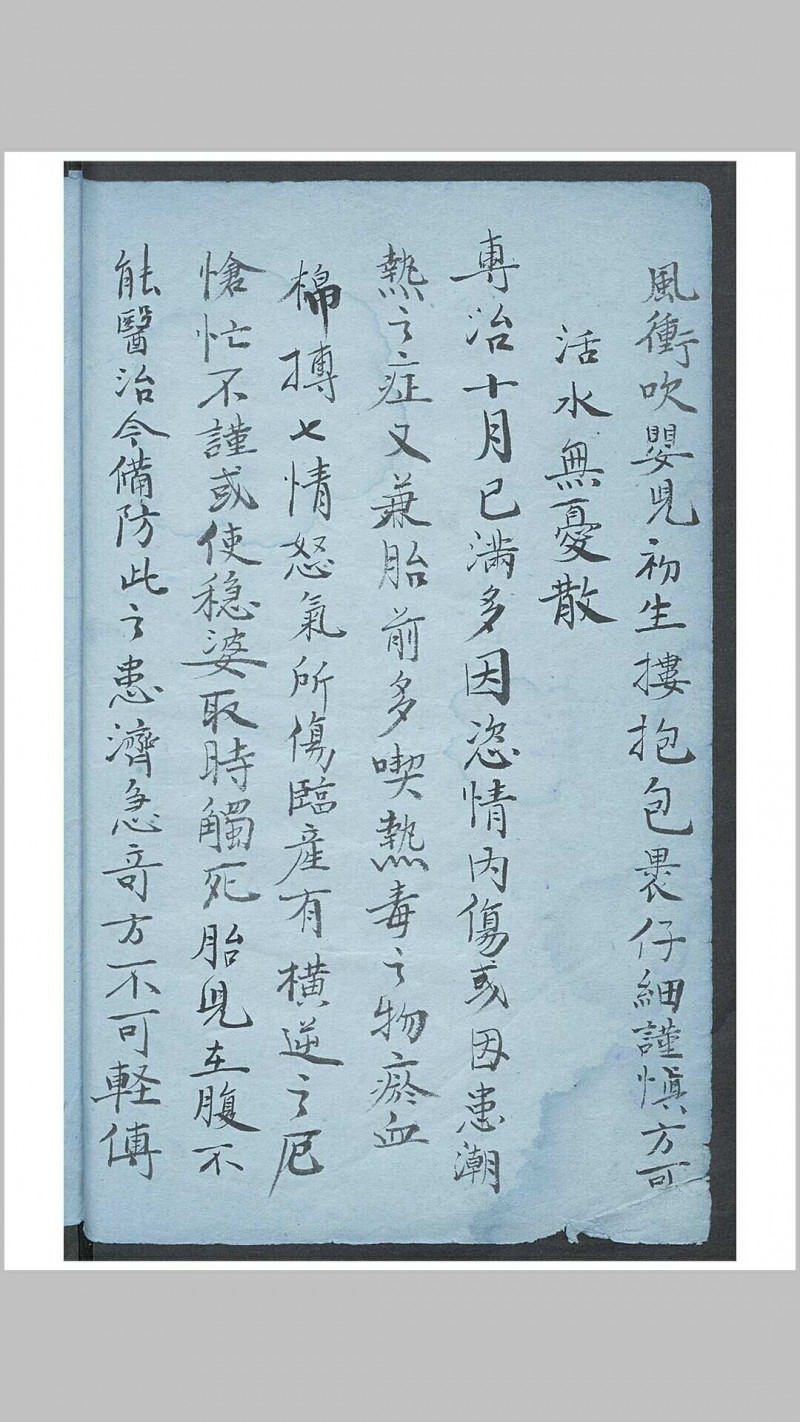 風衝吹嬰児初生摟抱包裹仔細謹慎方可
活水無憂散
專治十月已滿多因恣情内傷或因患潮
熱之症又兼胎前多喫熱毒之物瘀血
棉搏七情怒氣所傷臨產有橫逆之厄
愴忙不謹或使穏婆取時觸死胎児在腹不
能醫治今備防此之患濟急奇方不可軽傳